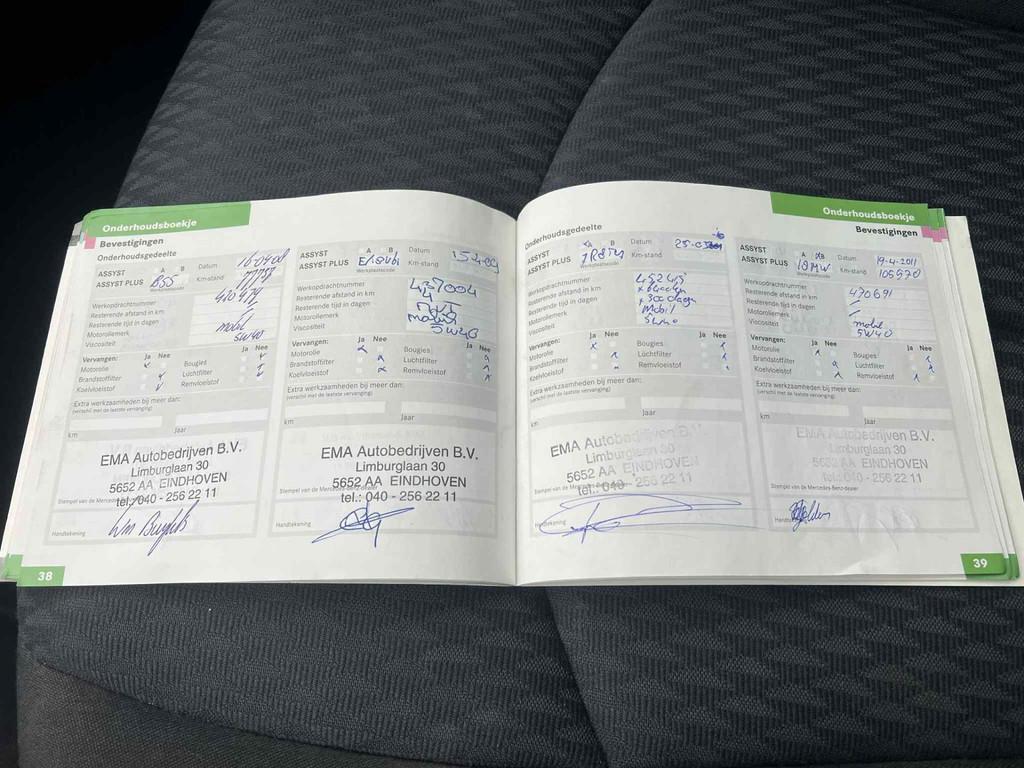 Onderhoudsboekje
Bevestigingen
Onderhoudsgedeelte
ASSYST
ASSYST PLUS
B55
Werkplaatscode
Datum 16-04-08
Km-stand 77757
Werkopdrachtnummer 420479
Resterende afstand in km
Resterende tijd in dagen
Motoroliemerk mobil
Viscositeit 5W40
Vervangen: Ja Nee Ja Nee
Motorolie Bougies
Brandstoffilter Luchtfilter
Koelvloeistof Remvloeistof
Extra werkzaamheden bij meer dan:
(verschil met de laatste vervanging)
km Jaar
EMA Autobedrijven B.V.
Limburglaan 30
5652 AA EINDHOVEN
tel.: 040 - 256 22 11
Stempel van de Mercedes-Benz-dealer
Handtekening
38
ASSYST A B
ASSYST PLUS
Werkplaatscode
Datum
Km-stand
437004
5W40
Vervangen: Ja Nee Ja Nee
Motorolie Bougies
Brandstoffilter Luchtfilter
Koelvloeistof Remvloeistof
Extra werkzaamheden bij meer dan:
(verschil met de laatste vervanging)
km Jaar
EMA Autobedrijven B.V.
Limburglaan 30
5652 AA EINDHOVEN
tel.: 040 - 256 22 11
Stempel van de Mercedes-Benz-dealer
Handtekening
Onderhoudsboekje
Bevestigingen
Onderhoudsgedeelte
ASSYST A B
ASSYST PLUS
Werkplaatscode
Datum
Km-stand
Werkopdrachtnummer
Resterende afstand in km
Resterende tijd in dagen x 300 dagen
Motoroliemerk Mobil
Viscositeit 5W40
Vervangen: Ja Nee Ja Nee
Motorolie Bougies
Brandstoffilter Luchtfilter
Koelvloeistof Remvloeistof
Extra werkzaamheden bij meer dan:
(verschil met de laatste vervanging)
km Jaar
EMA Autobedrijven B.V.
Limburglaan 30
5652 AA EINDHOVEN
tel.: 040 - 256 22 11
Stempel van de Mercedes-Benz-dealer
Handtekening
ASSYST A B
ASSYST PLUS
Werkplaatscode
Datum 19-4-2011
Km-stand 105970
Werkopdrachtnummer 470691
Resterende afstand in km
Resterende tijd in dagen
Motoroliemerk mobil
Viscositeit 5W40
Vervangen: Ja Nee Ja Nee
Motorolie Bougies
Brandstoffilter Luchtfilter
Koelvloeistof Remvloeistof
Extra werkzaamheden bij meer dan:
(verschil met de laatste vervanging)
km Jaar
EMA Autobedrijven B.V.
Limburglaan 30
5652 AA EINDHOVEN
tel.: 040 - 256 22 11
Stempel van de Mercedes-Benz-dealer
Handtekening
39